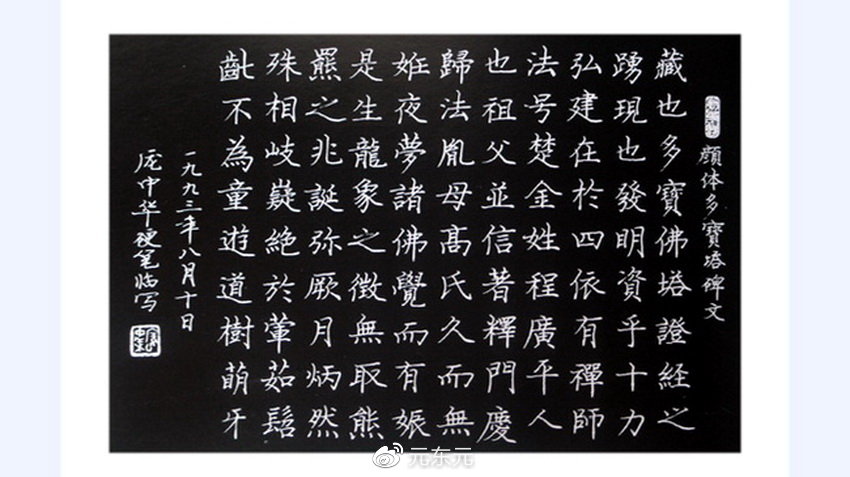 顔体多寶塔碑文
藏也多寶佛塔證經之
踴現也發明資乎十力
弘建在於四依有禪師
法号楚金姓程廣平人
也祖父並信著釋門慶
歸法胤母髙氏久而無
姙夜夢諸佛覺而有娠
是生龍象之徵無取熊
羆之兆誕弥厥月炳然
殊相岐嶷絶於葷茹髫
齔不為童遊道樹萌牙
一九九三年八月十日
庞中华硬笔临写
元东元